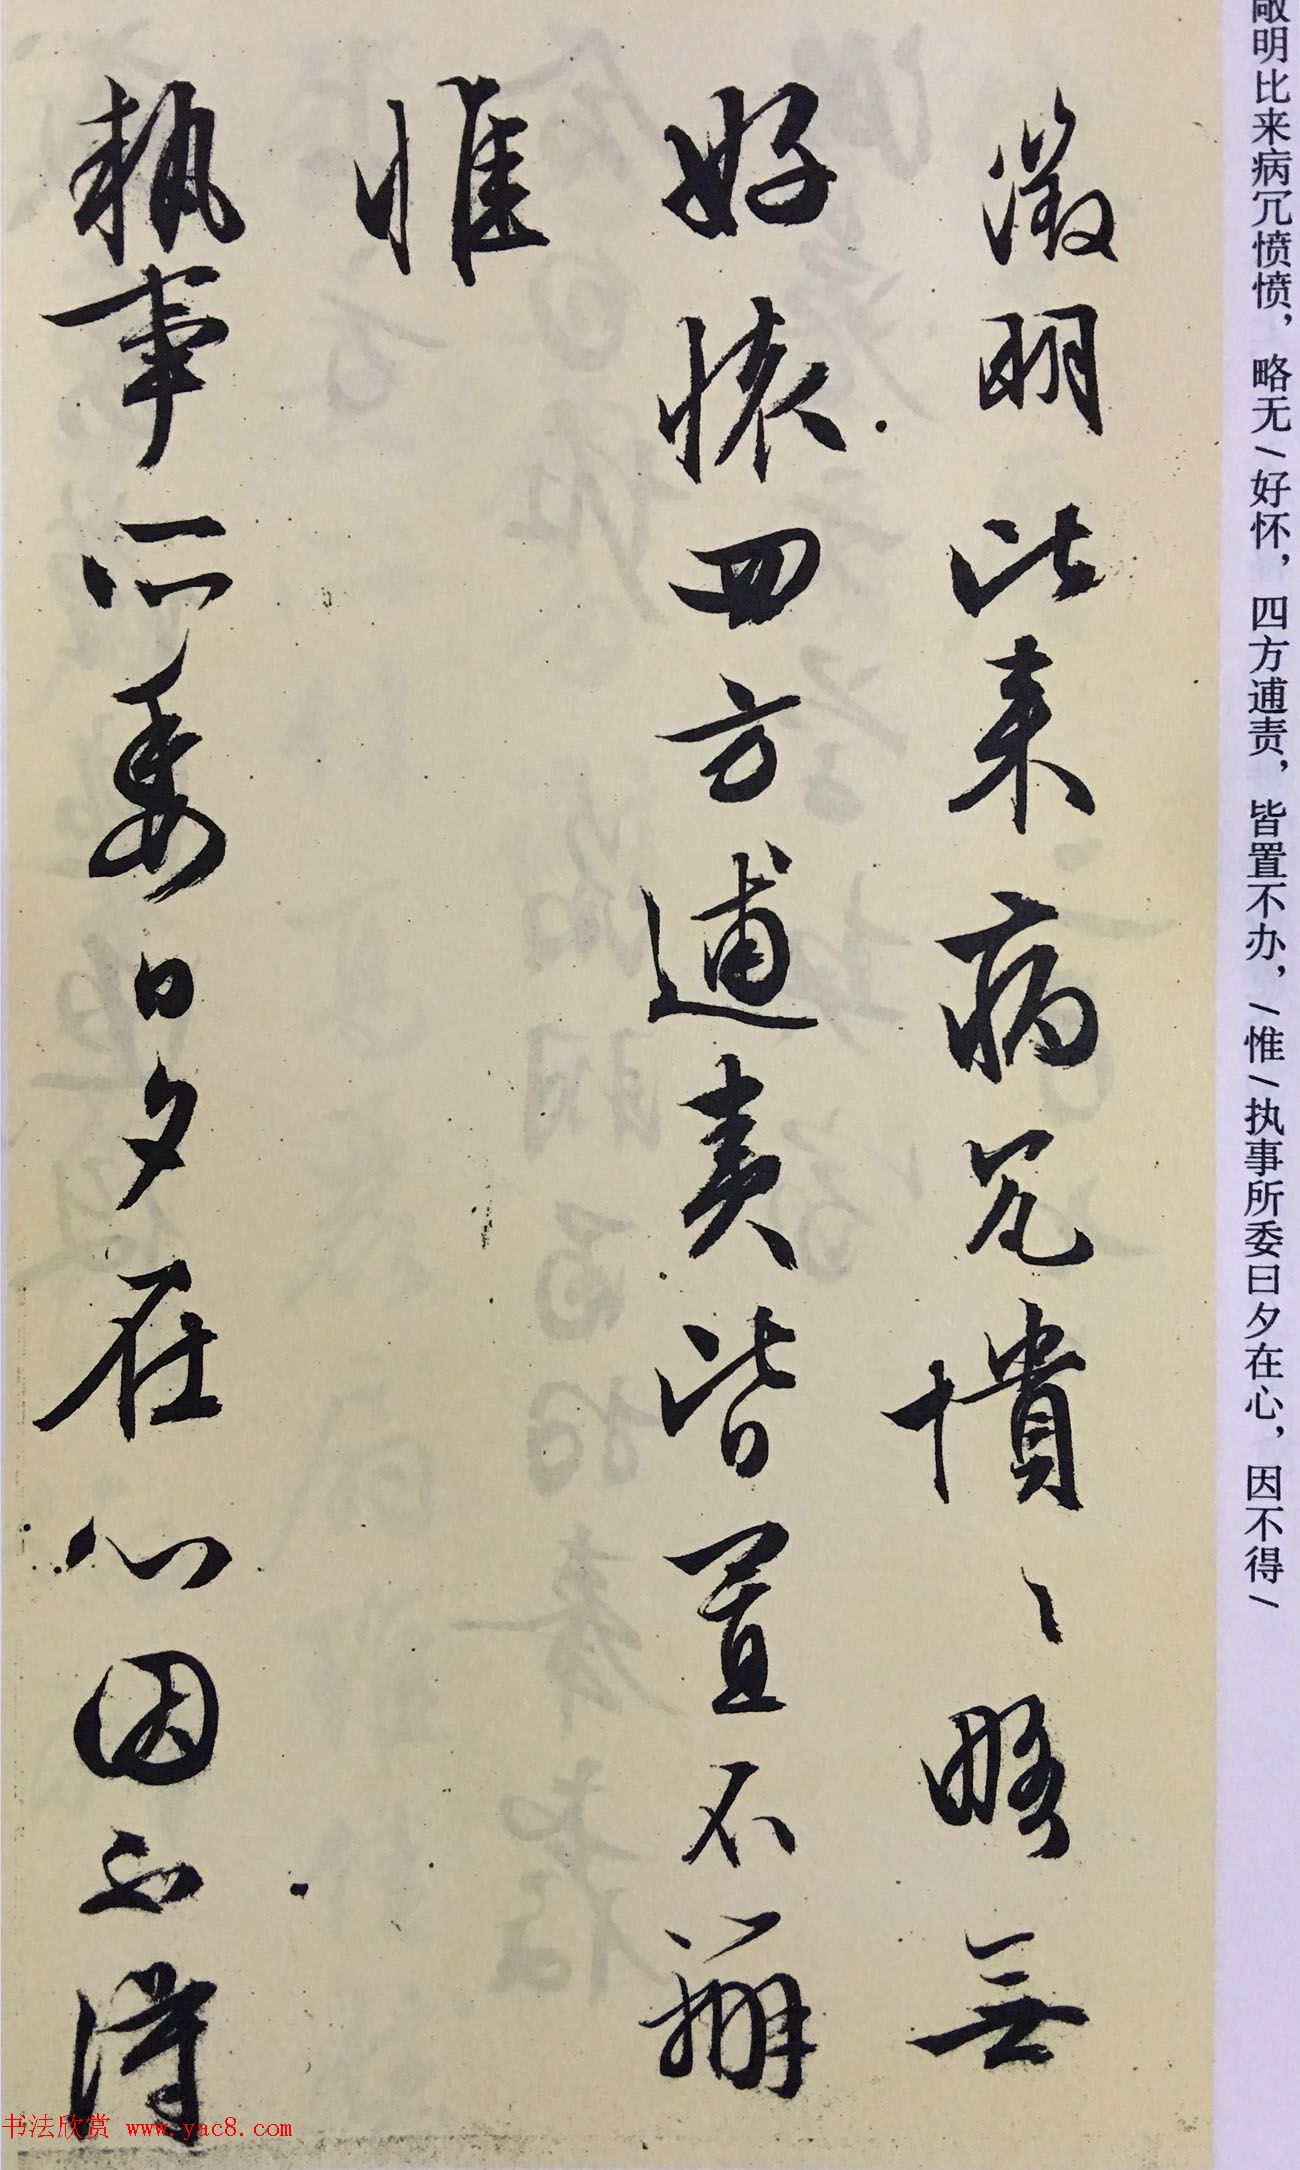 敞明比来病冗愤愤，略无/好怀，四方逋责，皆置不办，/惟/执事所委日夕在心，因不得/
徵明比来病冗愦〻略無
好懷四方逋责皆置不辦
惟
執事所委日夕在心因不得
书法欣赏 www.yac8.com